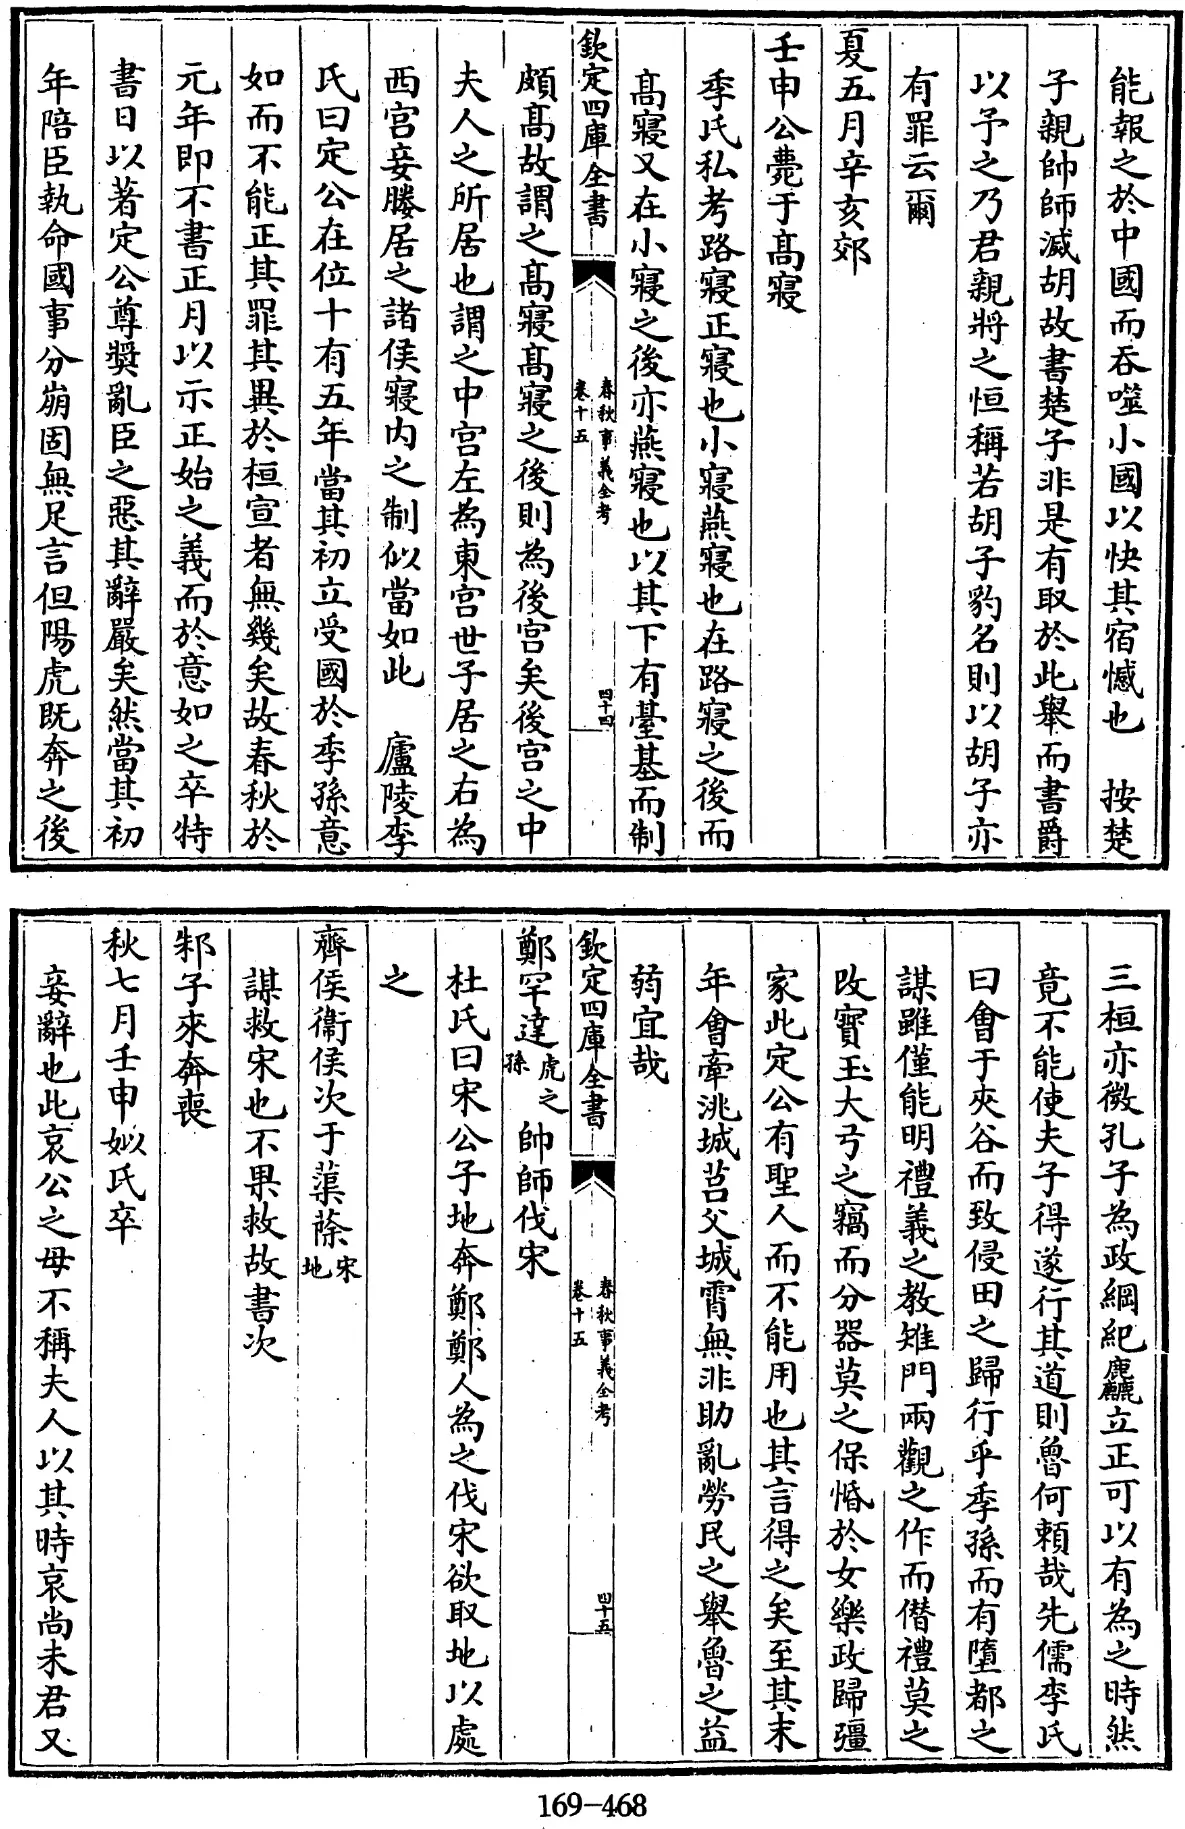 能報之於中國而吞噬小國以快其宿憾也　按楚
子親帥師滅胡故書楚子非是有取於此舉而書爵
以予之乃君親將之恒稱若胡子豹名則以胡子亦
有罪云爾
夏五月辛亥郊
壬申公薨于髙寢
季氏私考路寢正寢也小寢燕寢也在路寢之後而
髙寢又在小寢之後亦燕寢也以其下有臺基而制
欽定四庫全書
春秋事義全考
卷十五
四十四
頗髙故謂之髙寢髙寢之後則為後宮矣後宮之中
夫人之所居也謂之中宮左為東宮世子居之右為
西宮妾媵居之諸侯寢内之制似當如此　廬陵李
氏曰定公在位十有五年當其初立受國於季孫意
如而不能正其罪其異於桓宣者無幾矣故春秋於
元年即不書正月以示正始之義而於意如之卒特
書日以著定公尊奬亂臣之惡其辭嚴矣然當其初
年陪臣執命國事分崩固無足言但陽虎既奔之後
三桓亦微孔子為政綱紀麤立正可以有為之時然
竟不能使夫子得遂行其道則魯何頼哉先儒李氏
曰會于夾谷而致侵田之歸行乎季孫而有墮都之
謀雖僅能明禮義之教雉門兩觀之作而僭禮莫之
改寳玉大弓之竊而分器莫之保惛於女樂政歸彊
家此定公有聖人而不能用也其言得之矣至其末
年會牽洮城莒父城霄無非助亂勞民之舉魯之益
弱宜哉
欽定四庫全書
春秋事義全考
卷十五
四十五
鄭罕達虎之孫帥師伐宋
杜氏曰宋公子地奔鄭鄭人為之伐宋欲取地以處
之
齊侯衞侯次于蕖蒢宋地
謀救宋也不果救故書次
邾子來奔喪
秋七月壬申姒氏卒
妾辭也此哀公之母不稱夫人以其時哀尚未君又
169-468